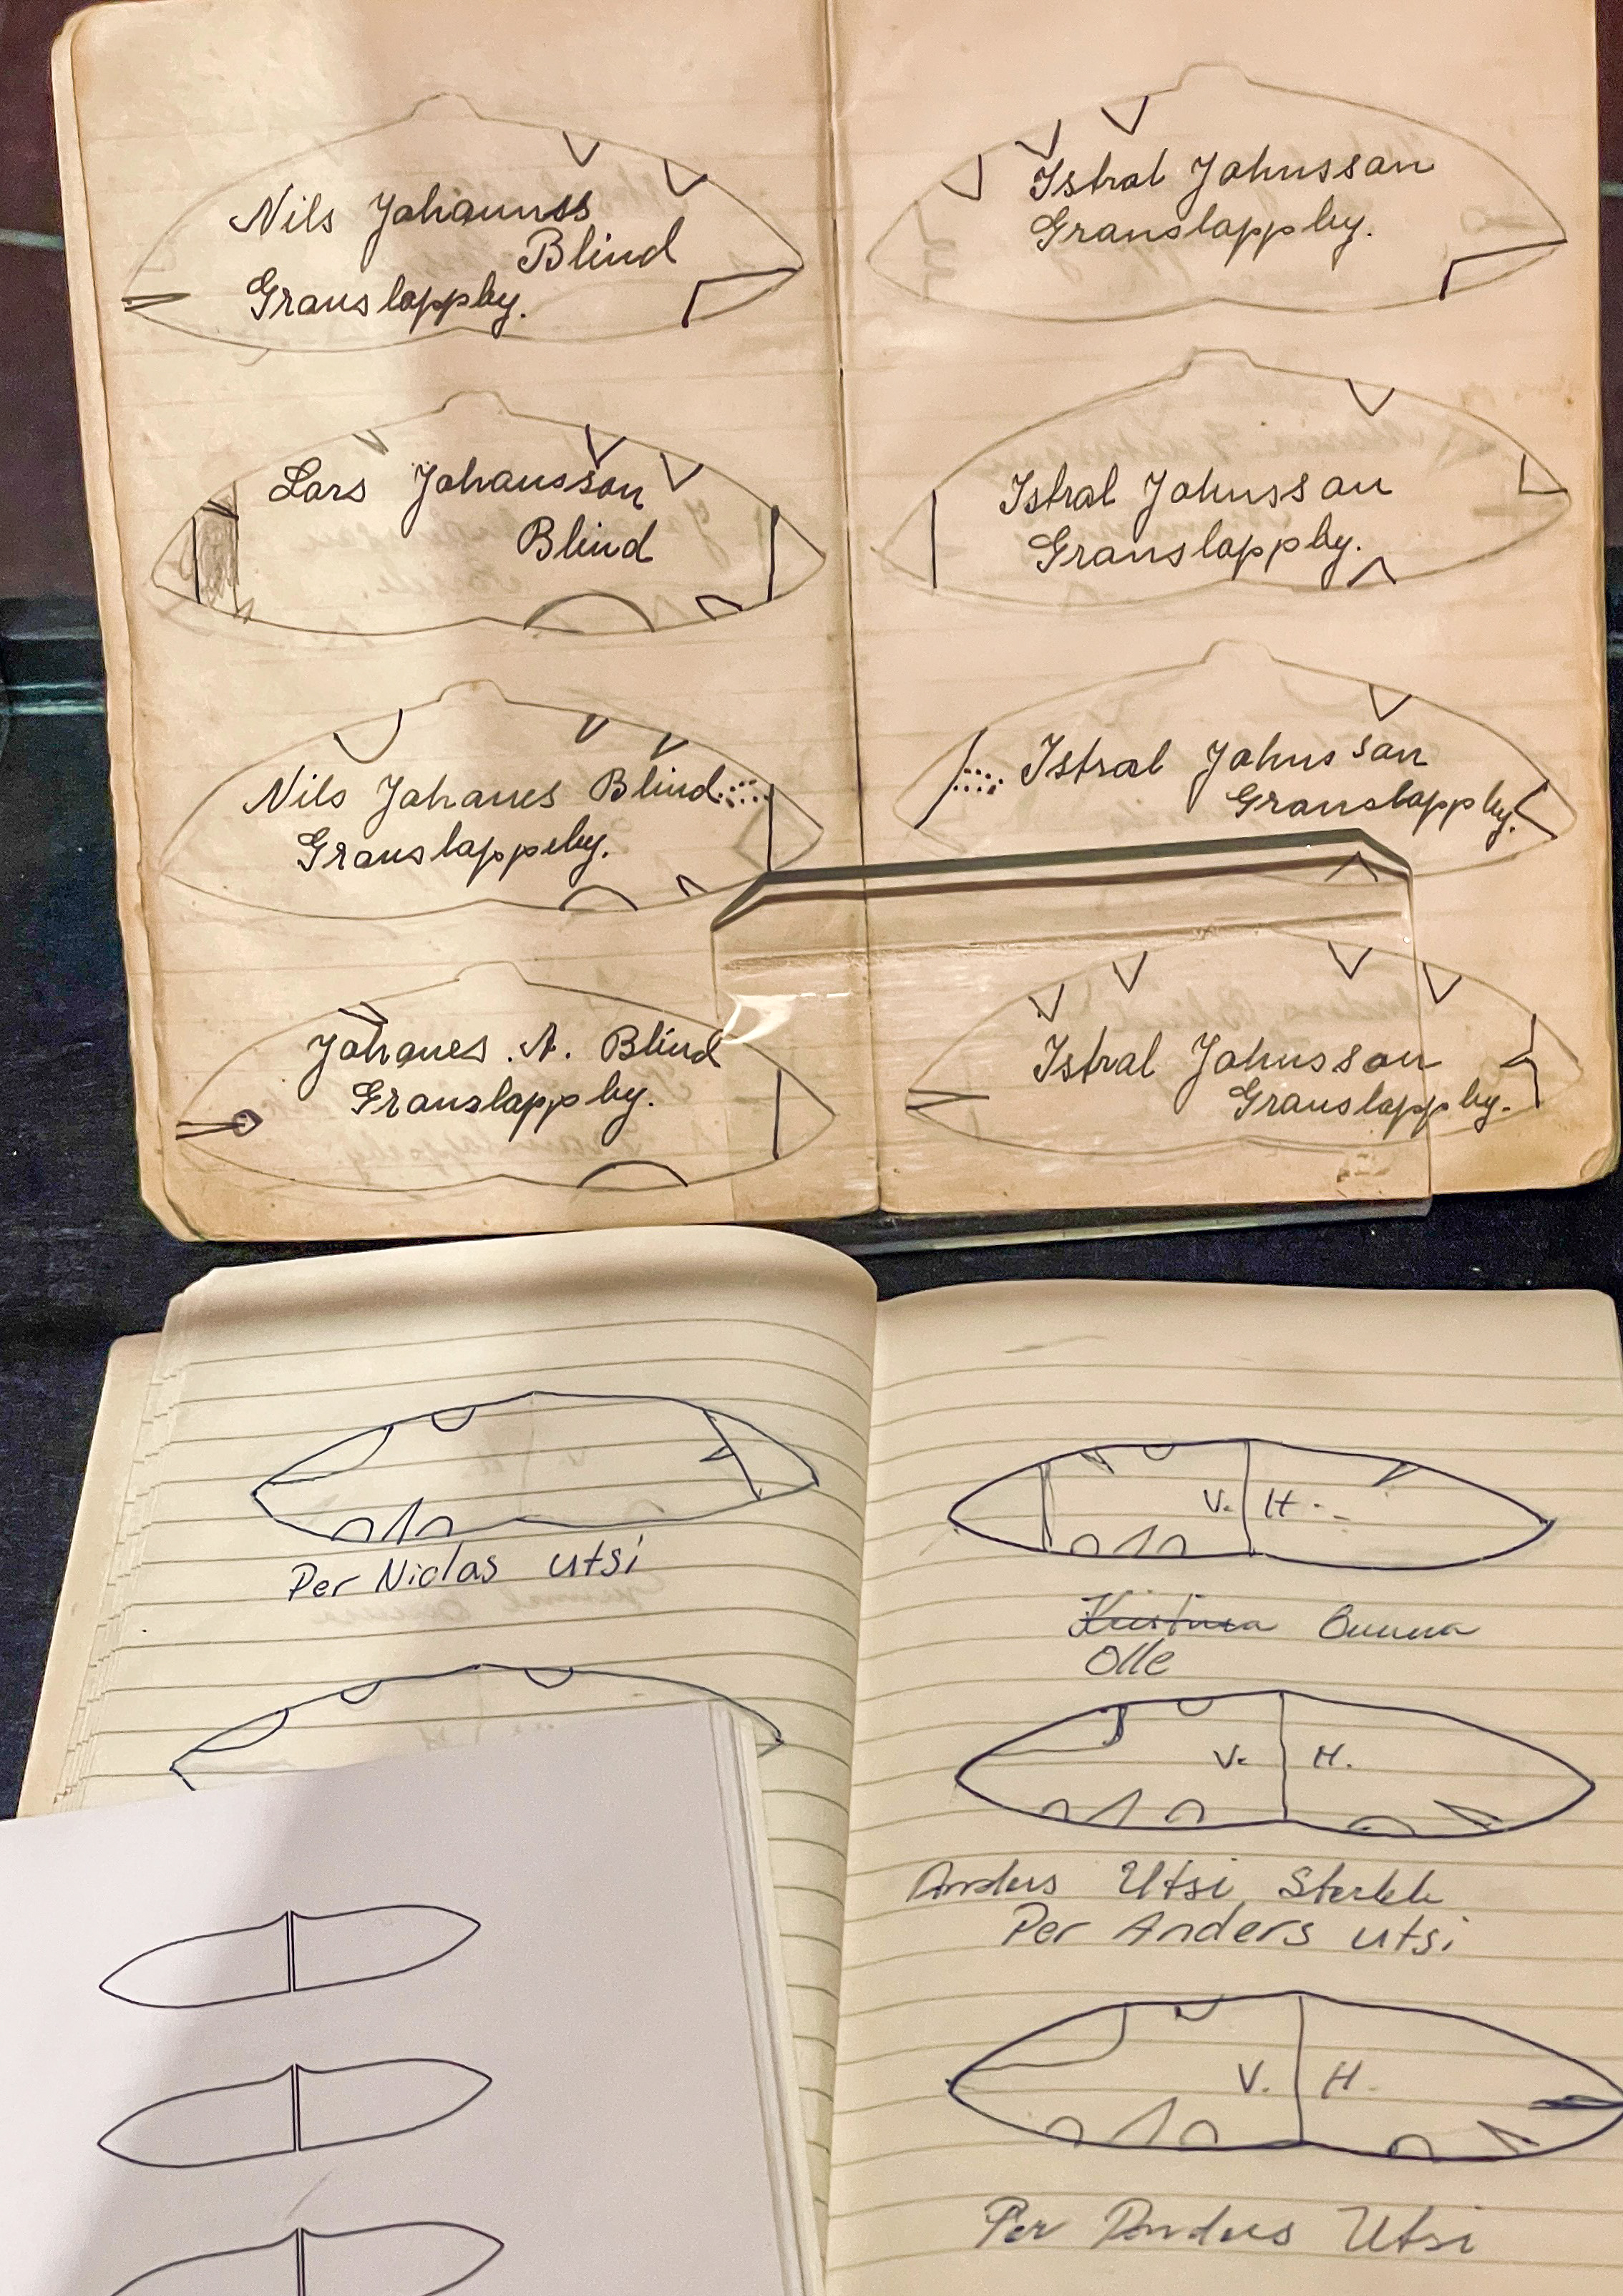 Nils Johannss
Blind
Granslappby.
Lars Johansson
Blind
Nils Johanes Blind
Granslappeby.
Johanes. A. Blind
Granslappby.
Istral Johnsson
Granslappby.
Istral Johnsson
Granslappby.
Istral Johnsson
Granslappby.
Istral Johnsson
Granslappby.
Per Niclas Utsi
V. H.
Kristina Omma
Olle
V. H.
Anders Utsi
Per Anders Utsi
V. H.
Per Anders Utsi